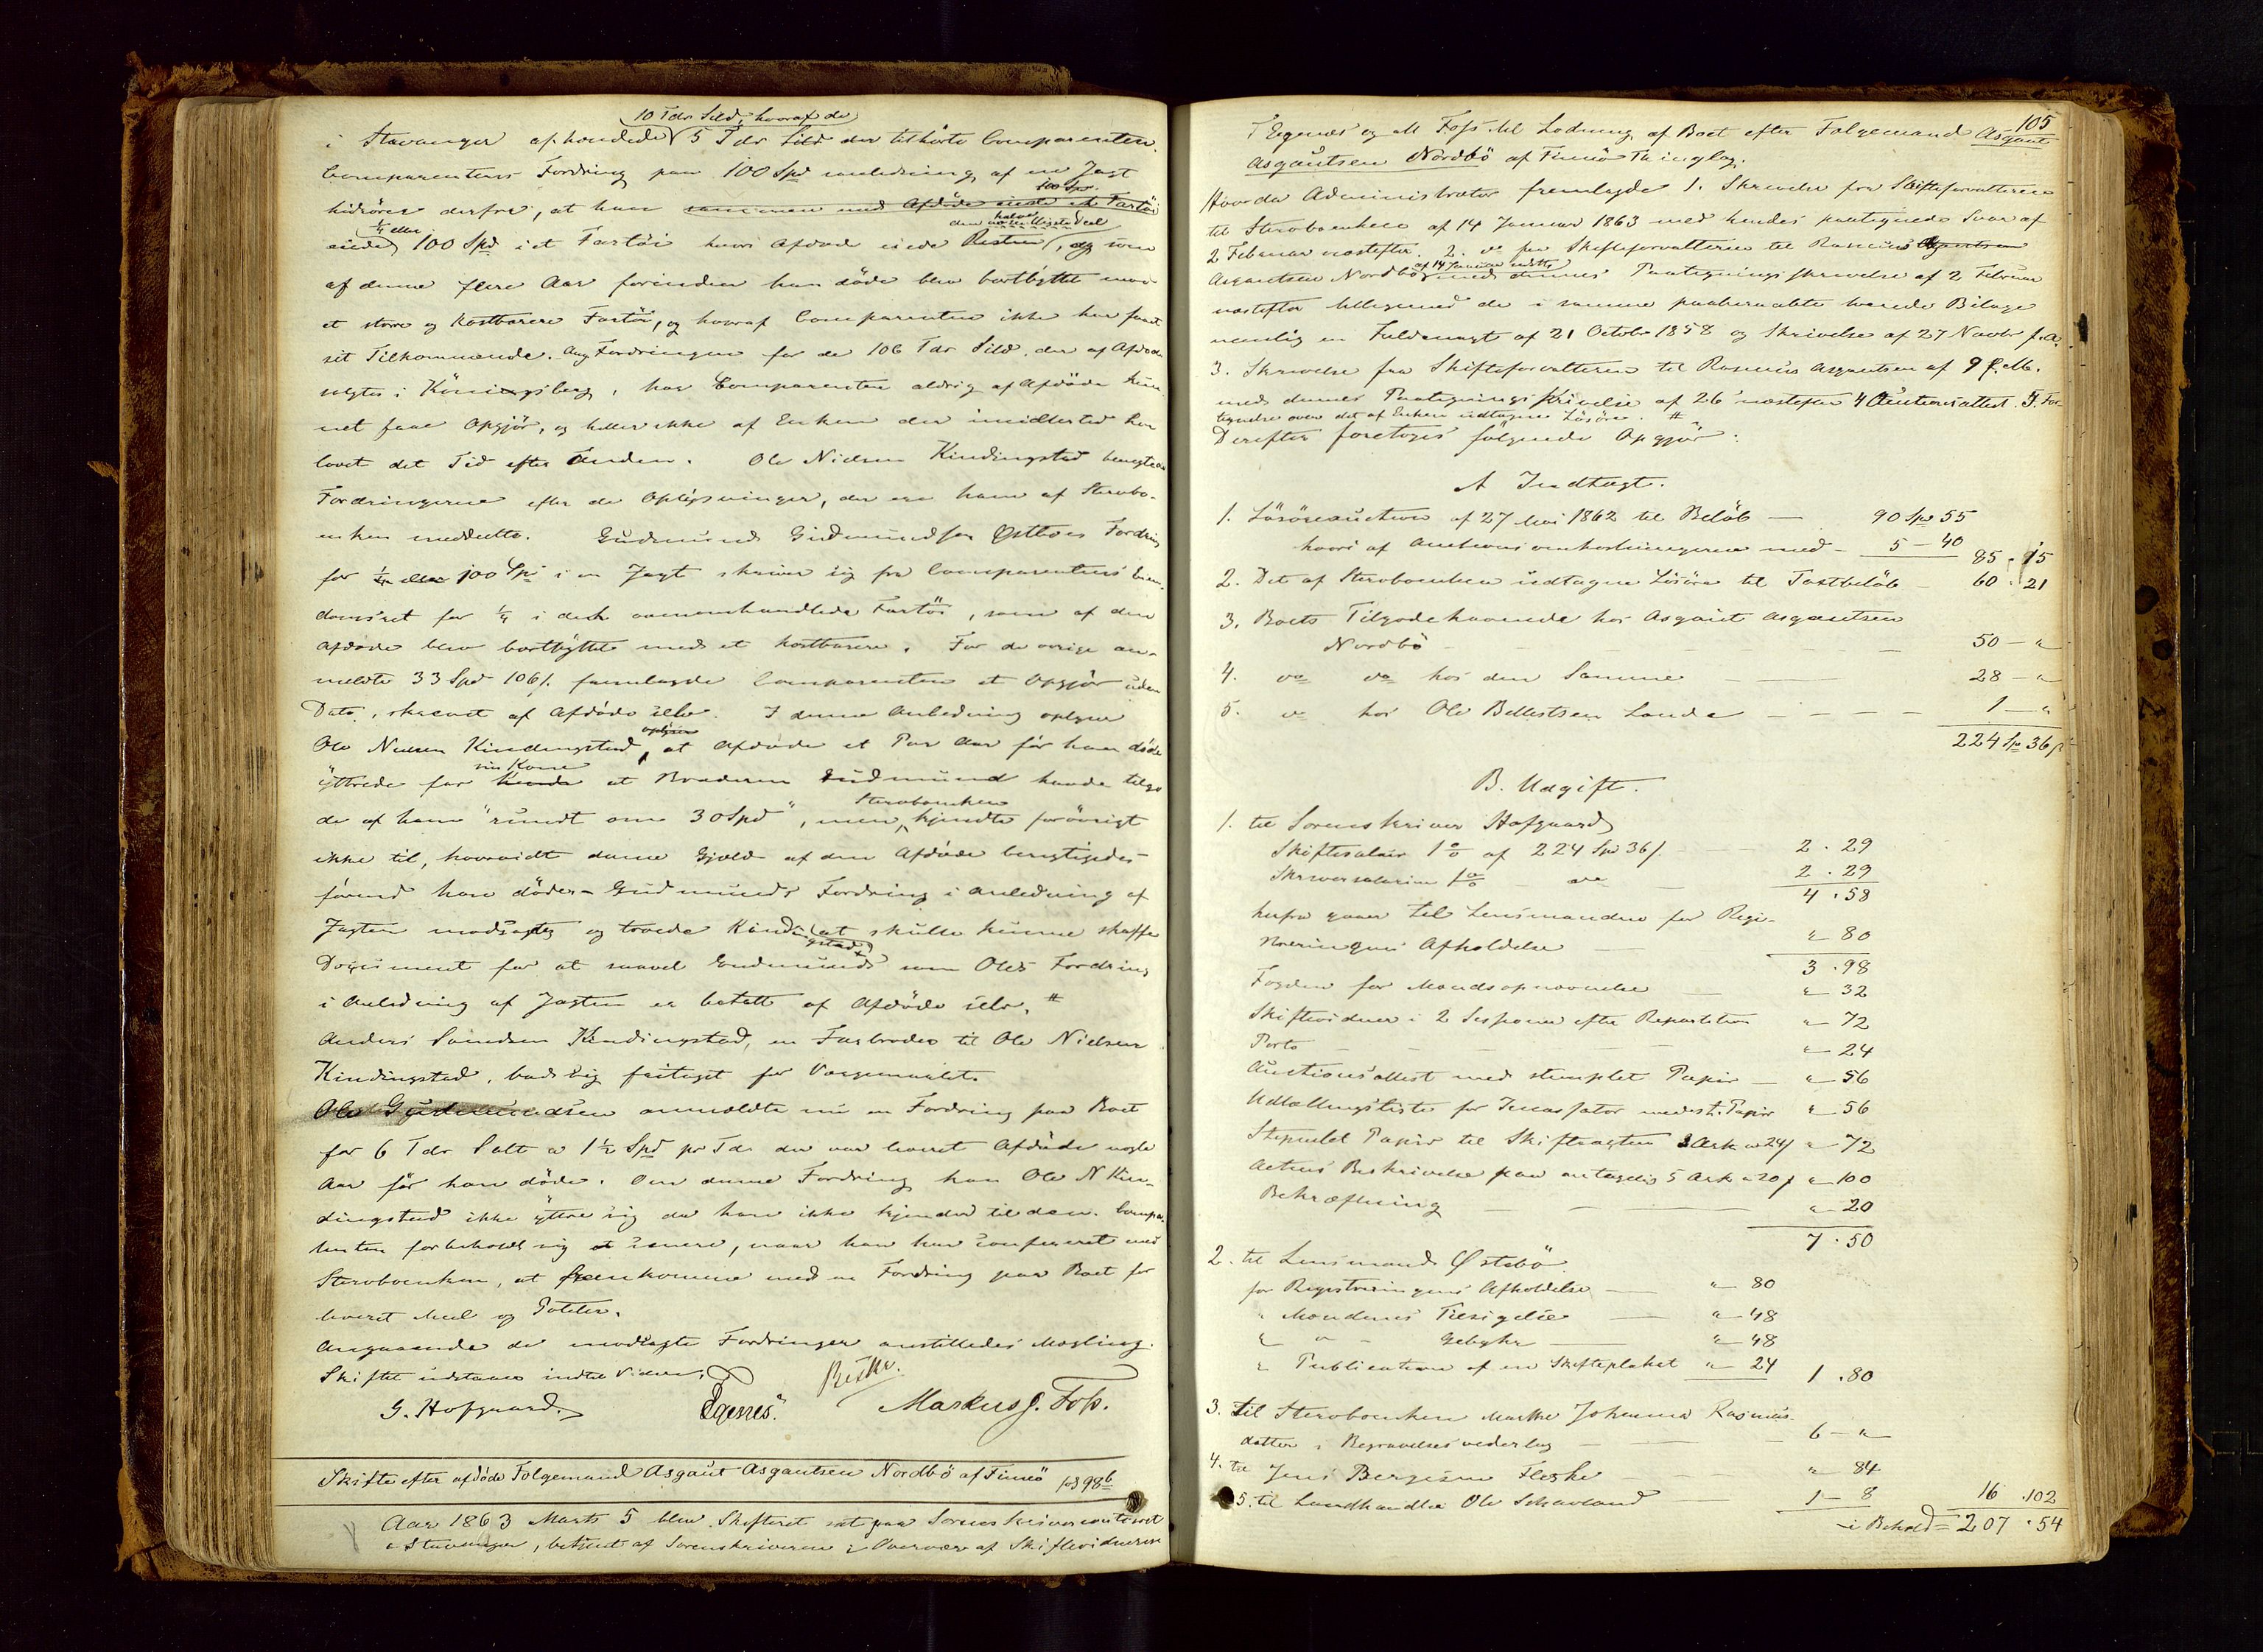 10 Tdr Sild, hvoraf de
i Stavanger afhændede 5 Tdr Sild der tilhørte Comparenten.
Comparentens Fordring paa 100 Spd anledning af en Jagt
100 Spd.
hidrører derfra, at han sammen med Afdøde eiede et Fartøi
¼ eller
den halve
eiede 100 Spd i et Fartøi hvori Afdøde eiede Resten, og som
af denne flere Aar forinden han døde blev bortbyttet mod
et større og kostbarere Fartøi, og hvoraf Comparenten ikke har faaet
sit Tilkommende. Ang Fordringen for de 106 Tdr Sild, der af Afdøde
solgtes i Königsberg, har Comparenten aldrig af Afdøde kun-
net faae Opgjør, og heller ikke af Enken der imidlertid har
lovet det Tid efter Anden. Ole Nielsen Kindingstad benegtede
Fordringerne efter de Oplysninger, der ere ham af Stervbo-
enken meddelte. Gudmund Gudmundsen Østbøes Fordring
for ¼ eller 100 Spd i en Jagt skriver sig fra Comparentens Eien-
domsret for ¼ i det ommeldte Fartøi, som af den
Afdøde blev bortbyttet med et kostbarere. For de øvrige an-
meldte 33 Spd 106 s. fremlagde Comparenten et Opgjør uden
Dato, skrevet af Afdøde selv. I denne Anledning oplyser
oplyser
Ole Nielsen Kindingstad, at Afdøde et Par Aar før han døde
sin Kone
yttrede for hende at Broderen Gudmund havde tilgo
Stervboenken
de af ham "rundt om 30 Spd", men kjendte forøvrigt
ikke til, hvorvidt denne Gjæld af den Afdøde berigtigedes
førend han døde. Gudmunds Fordring i Anledning af
Jagten modsagdes og troede Kindin at skulle kunne skaffe
gstad
Document for at saavel Gudmunds som Oles Fordring
i Anledning af Jagten er betalt af Afdøde selv. #
Anders Kindingstad, en Farbroder til Ole Nielsen
Kindingstad, bad sig fritaget for Værgemaalet.
Ole Gudmundsen anmeldte nu en Fordring paa Boet
for 6 Tdr Salt a 1½ Spd pr Tde der var leveret Afdøde nogle
Aar før han døde. Om denne Fordring kan Ole N Kin-
dingstad ikke yttre sig da han ikke kjender til den. Compa-
renten forbeholdt sig senere, naar han har confereret med
Stervboenken, at fremkomme med en Fordring paa Boet for
leveret Meel og Poteter.
Angaaende de modsagte Fordringer anstilledes Mægling.
Skiftet udstaaer indtil Videre.
Beskr.
G. Hofgaard. Egenes. Markus J. Foss.
Skifte efter afdøde Følgemand Asgaut Asgautsen Nordbø af Finnø fol 98b
Aar 1863 Marts 5 blev Skifteret sat paa Sorenskrivercontoret
i Stavanger, betjent af Sorenskriveren i Overvær af Skiftevidnerne
105
Egenæs og M Foss til Lodning af Boet efter Følgemand Asgaut
Asgautsen Nordbø af Finnø Thinglag.
Hvorda Administrator fremlagde 1. Skrivelse fra Skifteforvalteren
til Stervboenken af 14 Januar 1863 med hendes paategnede Svar af
2 Februar næstefter. 2. do fra Skifteforvalteren til Rasmus Asgautsen
af 14 Januar
Asgautsen Nordbø med dennes Paategningsskrivelse af 2 Februar
næstefter tilligemed de i samme paaberaabte tvende Bilage
nemlig en Fuldmagt af 21 Octobr 1858 og Skrivelse af 27 Novbr f.A.
3. Skrivelse fra Skifteforvalteren til Rasmus Asgautsen af 9 f.M.
med dennes Paategningsskrivelse af 26 næstefter 4 Auctionsattest. 5. For-
tegnelse over det af Enken udtagne Løsøre. #
Derefter foretoges følgende Opgjør:
A Indtægt.
1. Løsøreauction af 27 Mai 1862 til Beløb — 90 Sp 55
hvori af Auctionsomkostningerne med — 5 — 40 85 . 15
2. Det af Stervboenken udtagne Løsøre til Taxtbeløb 60 . 21
3. Boets Tilgodehavende hos Asgaut Asgautsen
Nordbø — — — 50 — "
4. do do hos den Samme — 28 — "
5. do hos Ole Bellestsen Lande — — — 1 — "
224 Sp 36 s
B. Udgift.
1. til Sorenskriver Hofgaard
Skiftesalair 1 % af 224 Spd 36 s. 2 . 29
Skriversalarium 1 % — do — 2 . 29
4 . 58
herfra gaaer til Lensmanden for Regi-
streringens Afholdelse — " 80
3 . 98
Fogden for Mændsopnævnelse — " 32
Skiftevidner i 2 Sessioner efter Repartition " 72
Porto — — — " 24
Auctionsattest med stemplet Papir — " 56
Udlællingsliste for Incassator med st. Papir " 56
Stemplet Papir til Skifteacten 3 Ark a 24 s " 72
Actens Beskrivelse paa antagelig 5 Ark a 20 s " 100
Bekræftning — — " 20
7 . 50
2. til Lensmand Østebø
for Registreringens Afholdelse — " 80
" Mændenes Tilsigelse — " 48
" " Gebyhr — " 48
" Publication af en Skifteplakat " 24 1 . 80
3. til Stervboenken Marthe Johanna Rasmus-
datter i Begravelsesvederlag — 6 — "
4. til Jens Bergesen Fleske " 84
5. til Landhandler Ole Schavland — 1 — 8 16 . 102
i Behold = 207 . 54